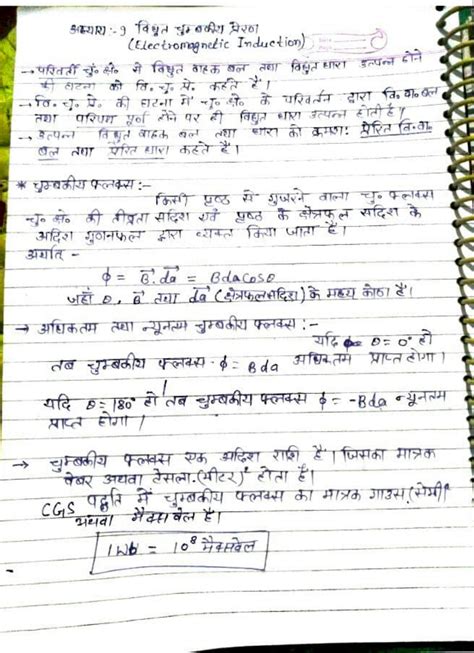 अध्याय :- 9 विधुत चुम्बकीय प्रेरण
(Electromagnetic Induction)
→ परिवर्ती चुं० क्षे० से विधुत वाहक बल तथा विधुत धारा उत्पन्न होने
की घटना को वि. चु. प्रे. कहते हैं।
→ वि. चु. प्रे. की घटना में चु. क्षे. के परिवर्तन द्वारा वि. वा. बल
तथा परिपथ पूर्ण होने पर ही विधुत धारा उत्पन्न होती है।
→ उत्पन्न विधुत वाहक बल तथा धारा को क्रमशः प्रेरित वि. वा.
बल तथा प्रेरित धारा कहते हैं।
* चुम्बकीय फ्लक्स :-
किसी पृष्ठ से गुजरने वाला चु. फ्लक्स
चु. क्षे. की तीव्रता सदिश एवं पृष्ठ के क्षेत्रफल सदिश के
अदिश गुणनफल द्वारा व्यक्त किया जाता है।
अर्थात -
ϕ = B⃗.da⃗ = Bdacosθ
जहाँ θ, B⃗ तथा da⃗ (क्षेत्रफल सदिश) के मध्य कोण है।
→ अधिकतम तथा न्यूनतम चुम्बकीय फ्लक्स :-
यदि θ = 0° हो
तब चुम्बकीय फ्लक्स ϕ = Bda अधिकतम प्राप्त होगा।
यदि θ = 180° हो तब चुम्बकीय फ्लक्स ϕ = -Bda न्यूनतम
प्राप्त होगा।
→ चुम्बकीय फ्लक्स एक अदिश राशि है। जिसका मात्रक
वेबर अथवा टेसला.(मीटर)² होता है।
CGS पद्धति में चुम्बकीय फ्लक्स का मात्रक गाउस.(सेमी)²
अथवा मैक्सवेल है।
1Wb = 10⁸ मैक्सवेल